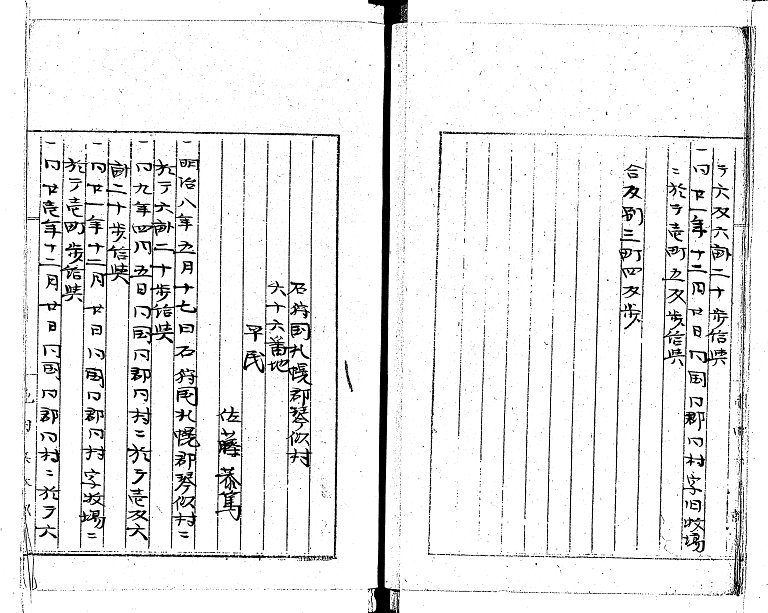 テ六反六畝二十歩給与
一同廿一年十二月廿日同国同郡同村字旧牧場
ニ於テ壱町五反歩給与
合反別三町四反歩
石狩国札幌郡琴似村
六十六番地
平民
佐藤恭篤
一明治八年五月十七日石狩国札幌郡琴似村ニ
於テ六畝二十歩給与
一同九年四月五日同国同郡同村ニ於テ壱反六
畝二十歩給与
一同廿一年十二月廿日同国同郡同村字牧場ニ
於テ壱町歩給与
一同廿壱年十二月廿日同国同郡同村ニ於テ六